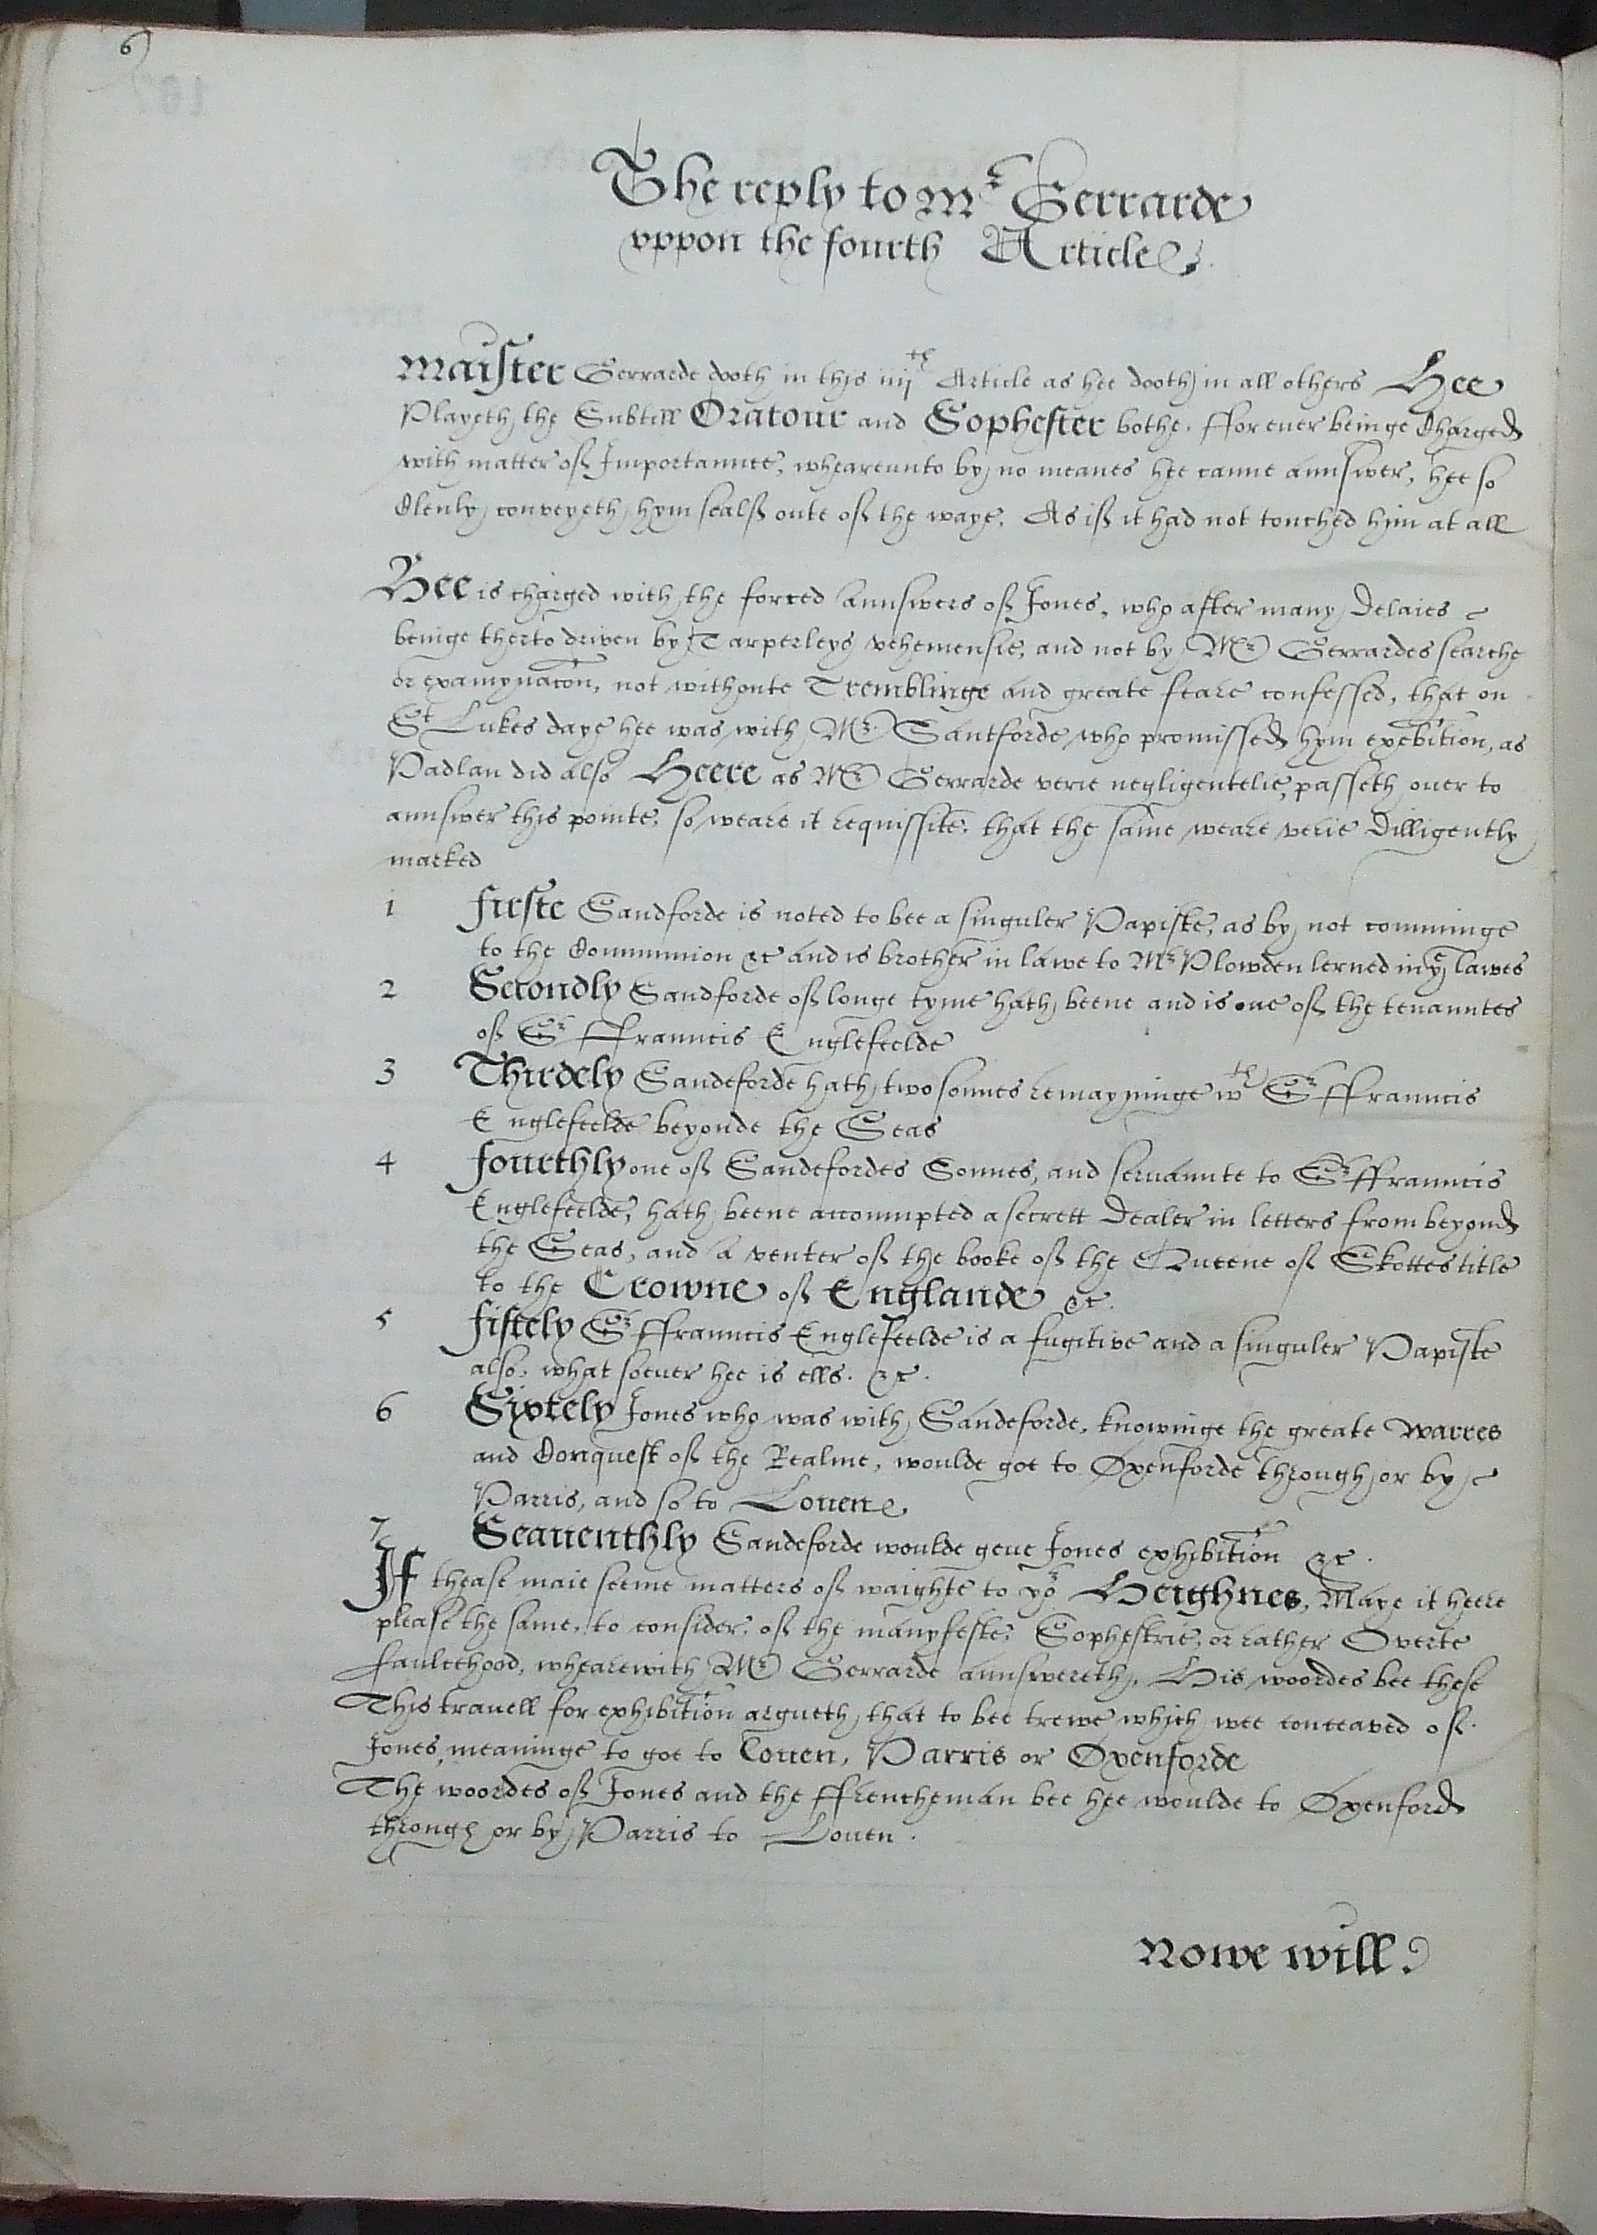 6
The reply to Mr Gerrarde
vppon the fourth Article
Maister Gerrarde dooth in this iiijth Article as hee dooth in all others Hee
Playeth the Subtill Oratour and Sophester bothe. ffor euer beinge Charged
with matter of Importaunce, wheareunto by no meanes hee canne aunswer, hee so
Clenly conveyeth hym sealf oute of the waye. As if it had not touched him at all
Hee is charged with the forced Aunswers of Jones, who after many Delaies
beinge therto driven by Tarperleys vehemensie, and not by Mr Gerrardes searche
or examynacon, not withoute Tremblinge and greate feare confessed, that on
St Lukes daye hee was with Mr Santforde who promissed hym exebition, as
Padlan did also Heere as Mr Gerrarde verie negligentelie, passeth ouer to
aunswer this pointe, so weare it requissite, that the same weare verie Dilligently
marked
1 firste Sandforde is noted to bee a singuler Papiste, as by not comminge
to the Communion &c and is brother in lawe to Mr Plowden lerned in ye lawes
2 Secondly Sandforde of longe tyme hath beene and is one of the tenauntes
of Sr ffrauncis Englefeelde
3 Thirdely Sandeforde hath two sonnes remayninge wth Sr ffrauncis
Englefeelde beyonde the Seas
4 fourthly one of Sandefordes Sonnes, and seruaunte to Sr ffrauncis
Englefeelde, hath beene accoumpted a secrett Dealer in letters from beyond
the Seas, and a venter of the booke of the Queene of Skottes title
to the Crowne of Englande &c.
5 fiftely Sr ffrauncis Englefeelde is a fugitive and a singuler Papiste
also, what soeuer hee is ells. &c.
6 Sixtely Jones who was with Sandeforde, knowinge the greate warres
and Conquest of the Realme, woulde goe to Oxenforde through or by
Parris, and so to Louen
7 Seauenthly Sandeforde woulde geue Jones exhibition &c.
If thease maie seeme matters of waighte to yor Heighnes, Maye it heere
please the same, to consider, of the manyfeste, Sophestrie, or rather Overte
faulcehood, whearewith Mr Gerrarde aunswereth, His woordes bee these
This trauell for exhibition argueth that to bee trewe which wee conceaved of.
Jones, meaninge to goe to Louen, Parris or Oxenforde
The woordes of Jones and the ffrencheman bee hee woulde to Oxenford
through or by Parris to Louen.
Nowe will